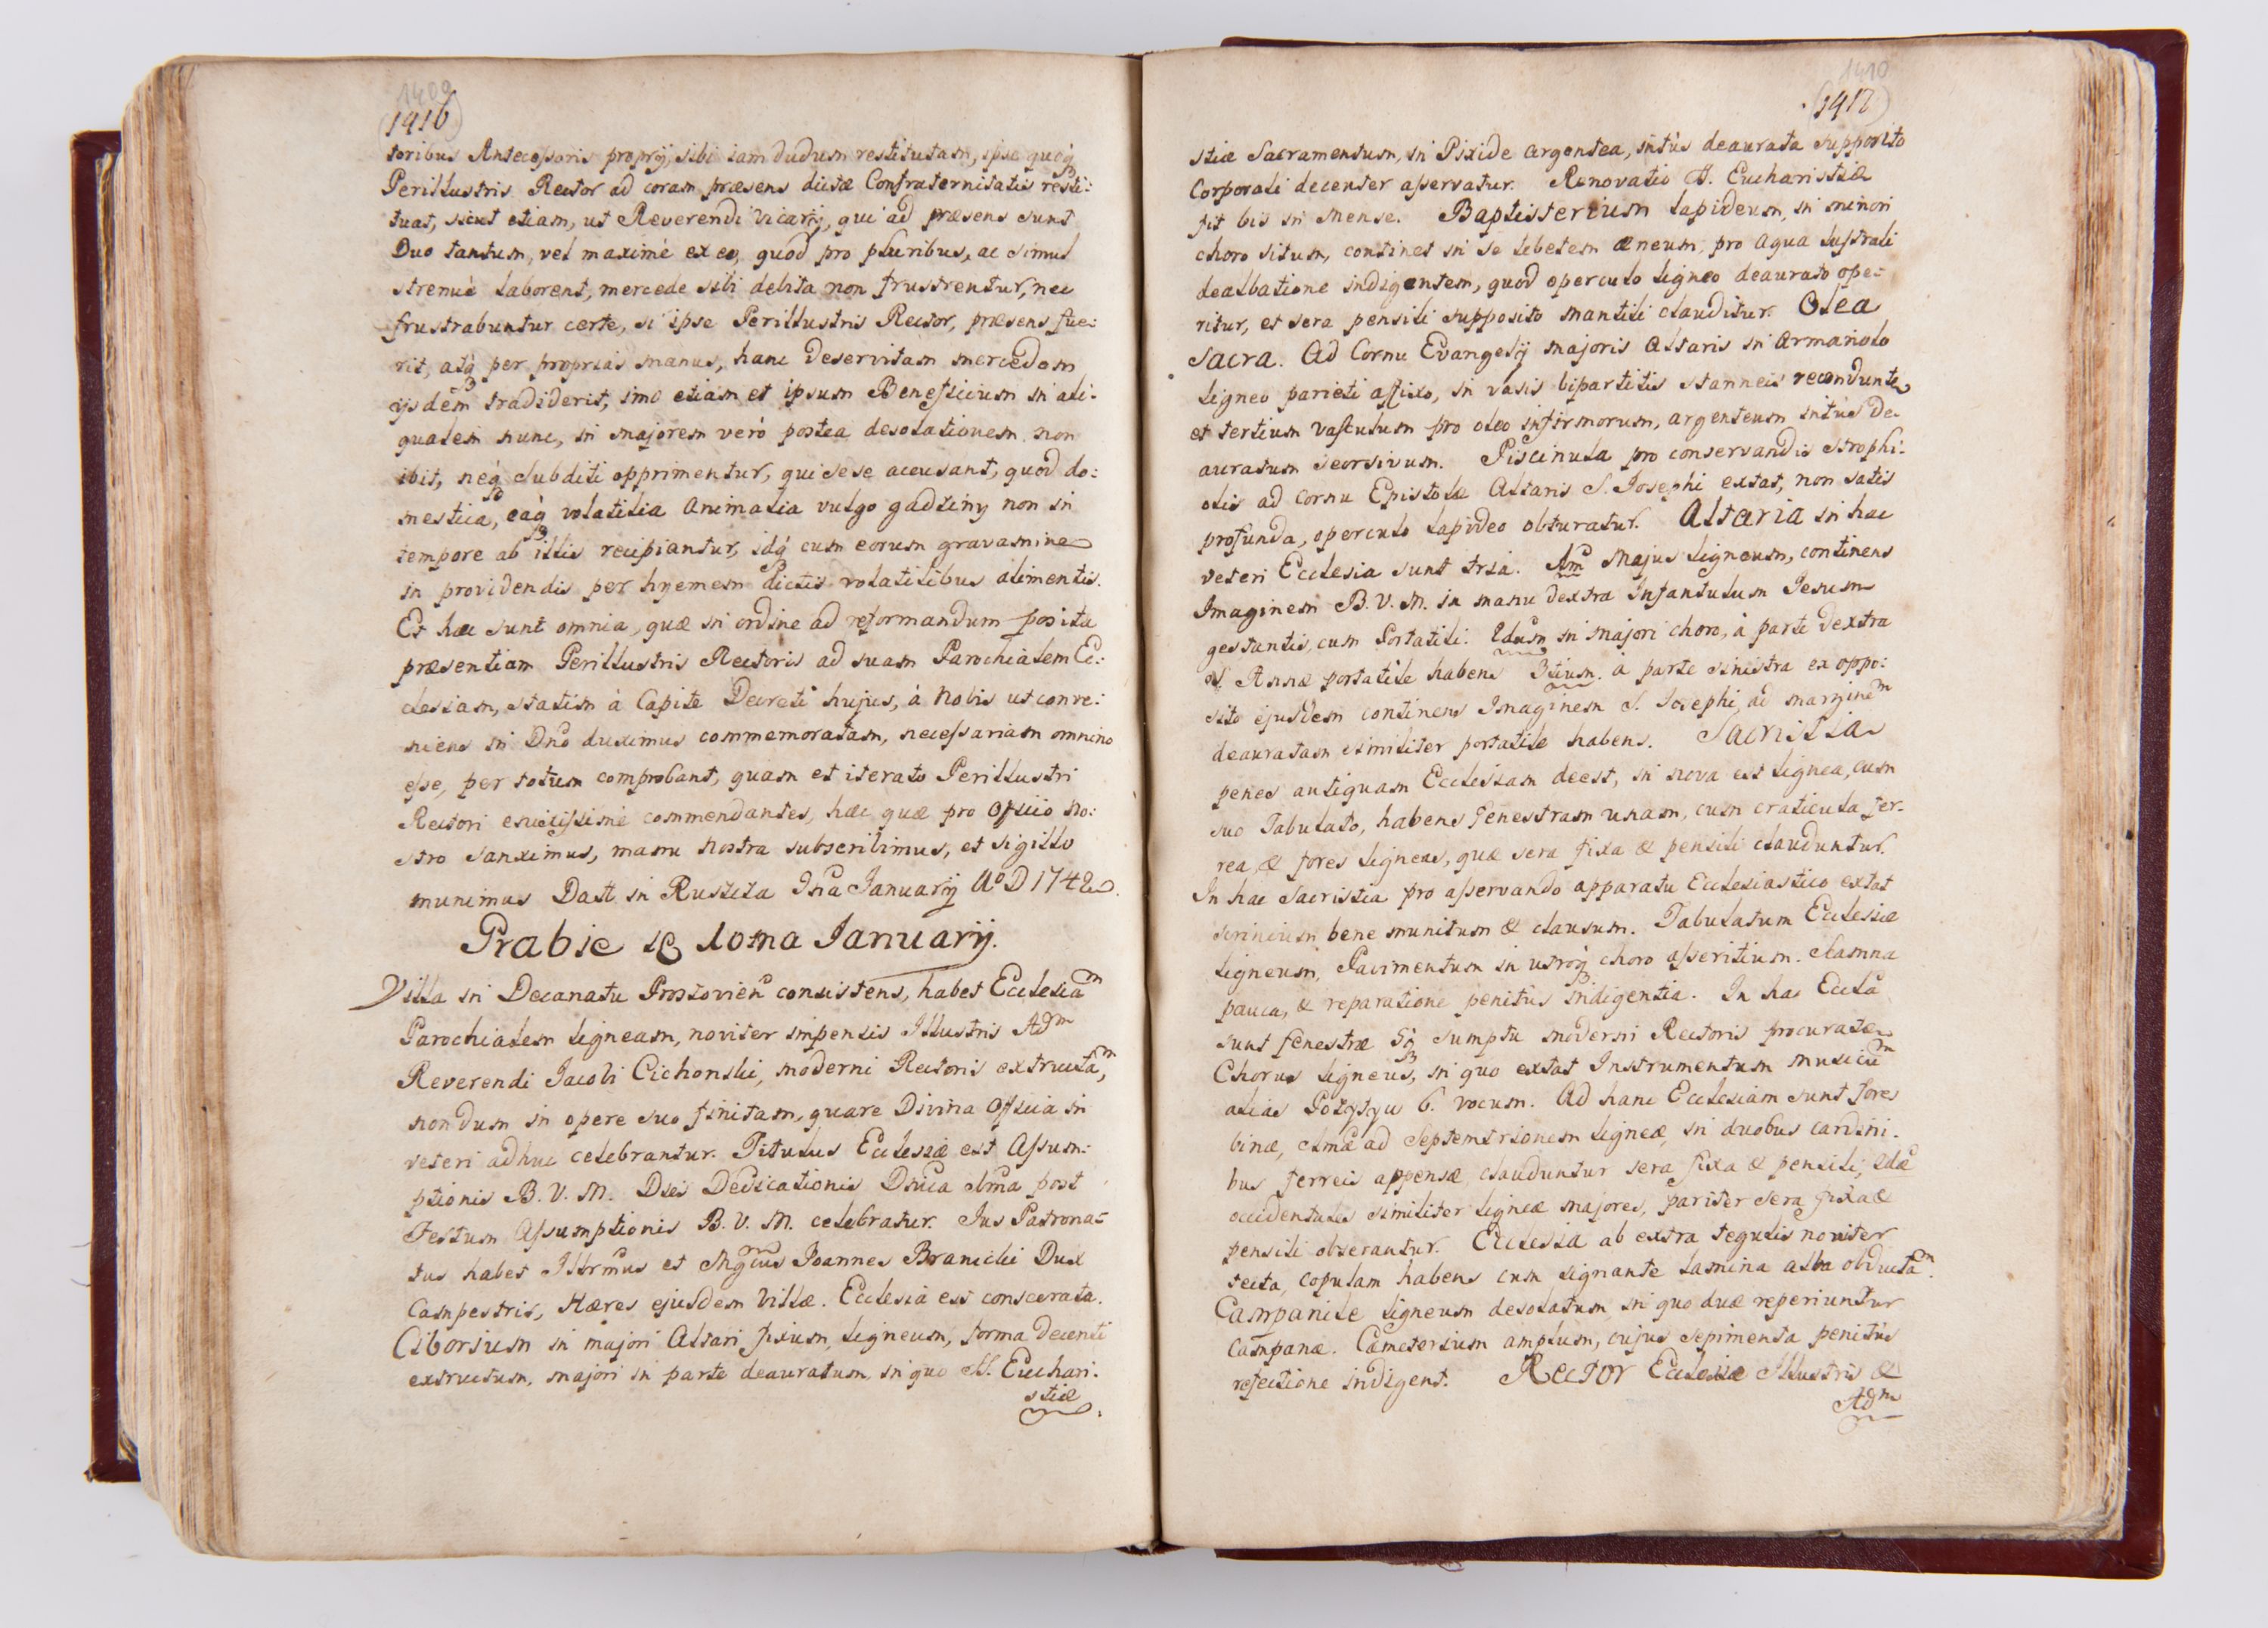 1409
(1416)
toribus Antecessoris proprij, sibi iam dudum restitutam, ipse quoq
Perillustris Rector ad coram præsens dictæ Confraternitatis resti:
tuat, sicut etiam, ut Reverendi Vicarij, qui ad præsens sunt
Duo tantum, vel maximè ex eo, quod pro pluribus, ac simul
strenuè laborent, mercede sibi debita non frustrentur, nec
frustrabuntur certe, si ipse Perillustris Rector, præsens fue:
rit, atq per proprias manus, hanc deservitam mercedem
ijsdem tradiderit, imo etiam et ipsum Beneficium in ali:
qualem nunc, in majorem verò postea desolationem non
ibit, neq Subditi opprimentur, qui sese accusant, quod do:
mestica, eaq volatilia animalia vulgo gadziny non in
tempore ab illis recipiantur, idq cum eorum gravamine
in providendis per hyemem dictis volatilibus alimentis.
Et hæc sunt omnia, quæ in ordine ad reformandum posita
præsentiam Perillustris Rectoris ad suam Parochialem Ec:
clesiam, statim à Capite Decreti hujus, à Nobis ut conve:
niens in Dno duximus commemoratam, necessariam omnino
esse, per totum comprobant, quam et iterato Perillustri
Rectori enixissimè commendantes, hæc quæ pro Officio no:
stro sanximus, manu nostra subscribimus, et sigillo
munimus Datt. in Ruszcza Januarij Aº D 1742.
Grabie 10ma Januarij.
Villa in Decanatu Proszovien consistens, habet Ecclesiam
Parochialem ligneam, noviter impensis Illustris Adm
Reverendi Jacobi Cichonski, moderni Rectoris extructam,
nondum in opere suo finitam, quare Divina Officia in
veteri adhuc celebrantur. Titulus Ecclesiæ est Assum:
ptionis B. V. M. Dies Dedicationis Dnica post
Festum Assumptionis B. V. M. celebratur. Jus Patrona:
tus habet Illrmus et Mgcus Joannes Branicki Dux
Campestris, Hæres ejusdem Villæ. Ecclesia est consecrata.
Ciborium in majori Altari fixum, ligneum, forma decenti
extructum, majori in parte deauratum, in quo SS. Euchari:
stiæ
1410
(1417)
stiæ Sacramentum, in Pixide argentea, intùs deaurata supposito
Corporali decenter asservatur. Renovatio SS. Eucharistiæ
fit bis in Mense. Baptisterium lapideum, in minori
choro situm, continet in se lebetem æneum, pro aqua lustrali
dealbatione indigentem, quod operculo ligneo deaurato ope:
ritur, et sera pensili supposito mantili clauditur. Olea
Sacra. Ad Cornu Evangelij majoris Altaris in armariolo
ligneo parieti affixo, in vasis bipartitis stanneis reconduntur
et tertium vasculum pro oleo infirmorum, argenteum intùs de
auratum seorsivum. Piscinula pro conservandis Strophi:
olis ad cornu Epistolæ Altaris S. Josephi extat, non satis
profunda, operculo lapideo obturatur. Altaria in hac
veteri Ecclesia sunt tria. Majus ligneum, continens
Imaginem B. V. M. in manu dextra Infantulum Jesum
gestantis, cum Portatili. 2dum in majori choro, à parte dextra
S. Annæ portatile habens 3tium. à parte sinistra ex oppo:
sito ejusdem continens Imaginem S. Josephi, ad marginem
deauratam similiter portatile habens. Sacristia
penes antiquam Ecclesiam deest, in nova est lignea, cum
suo Tabulato, habens Fenestram unam, cum craticula fer:
rea, & fores ligneas, quæ sera fixa & pensili clauduntur.
In hac Sacristia pro asservando apparatu Ecclesiastico extat
scrinium bene munitum & clausum. Tabulatum Ecclesiæ
ligneum, Pavimentum in utroq choro asseritium. Scamna
pauca, & reparatione penitùs indigentia. In hac Eccla
sunt fenestræ sumptu moderni Rectoris procuratæ
Chorus ligneus, in quo extat Instrumentum musicum
alias Pozytyw 6. vocum. Ad hanc Ecclesiam sunt fores
binæ, ad Septemtrionem ligneæ, in duobus cardini:
bus ferreis appensæ clauduntur sera fixa & pensili, 2dæ
occidentales similiter ligneæ majores, pariter sera fixa &
pensili obserantur. Ecclesia ab extra tegulis noviter
tecta, copulam habens cum signante lamina alba obductam.
Campanile ligneum desolatum, in quo duæ reperiuntur
campanæ. Cæmeterium amplum, cujus sepimenta penitùs
refectione indigent. Rector Ecclesiæ Illustris &
Adm